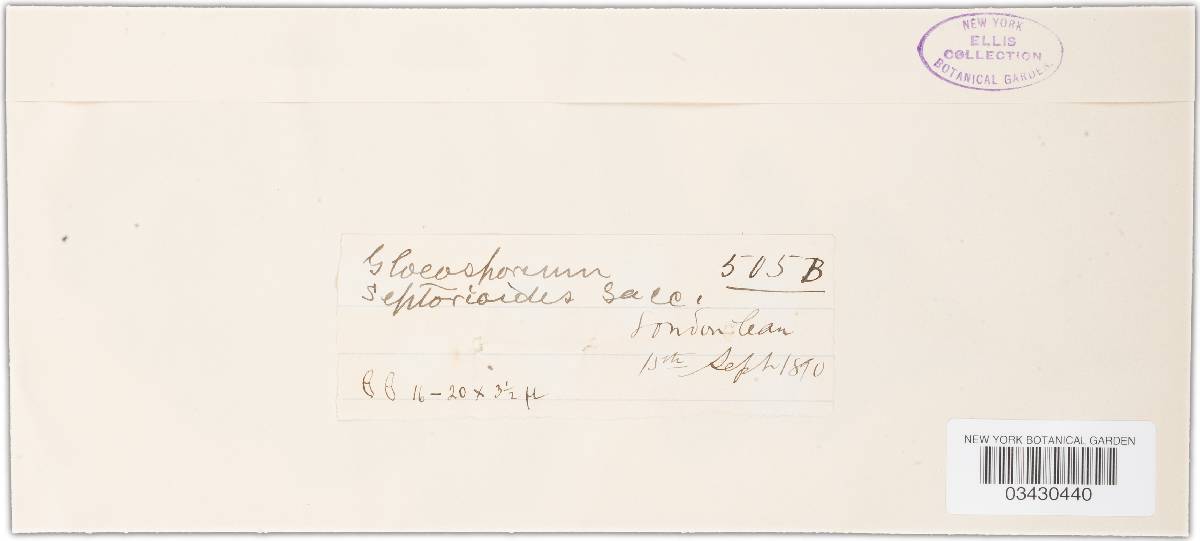 NEW YORK
ELLIS
COLLECTION
BOTANICAL GARDEN.
Gloeosporium 505B
Septorioides Sacc.
London Can
15th Sept 1890
16–20 x 3½ µ
NEW YORK BOTANICAL GARDEN
03430440